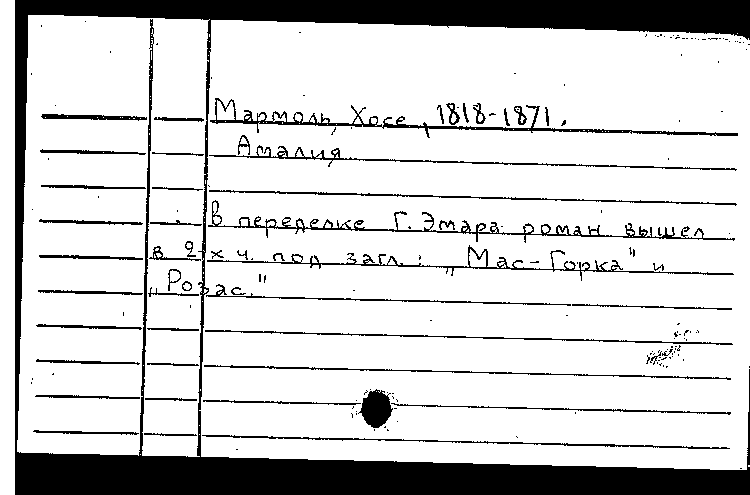 Мармоль, Хосе, 1818-1871.
Амалия
В переделке Г. Эмара роман вышел
в 2-х ч. под загл.: „Мас-Горка" и
„Розас."